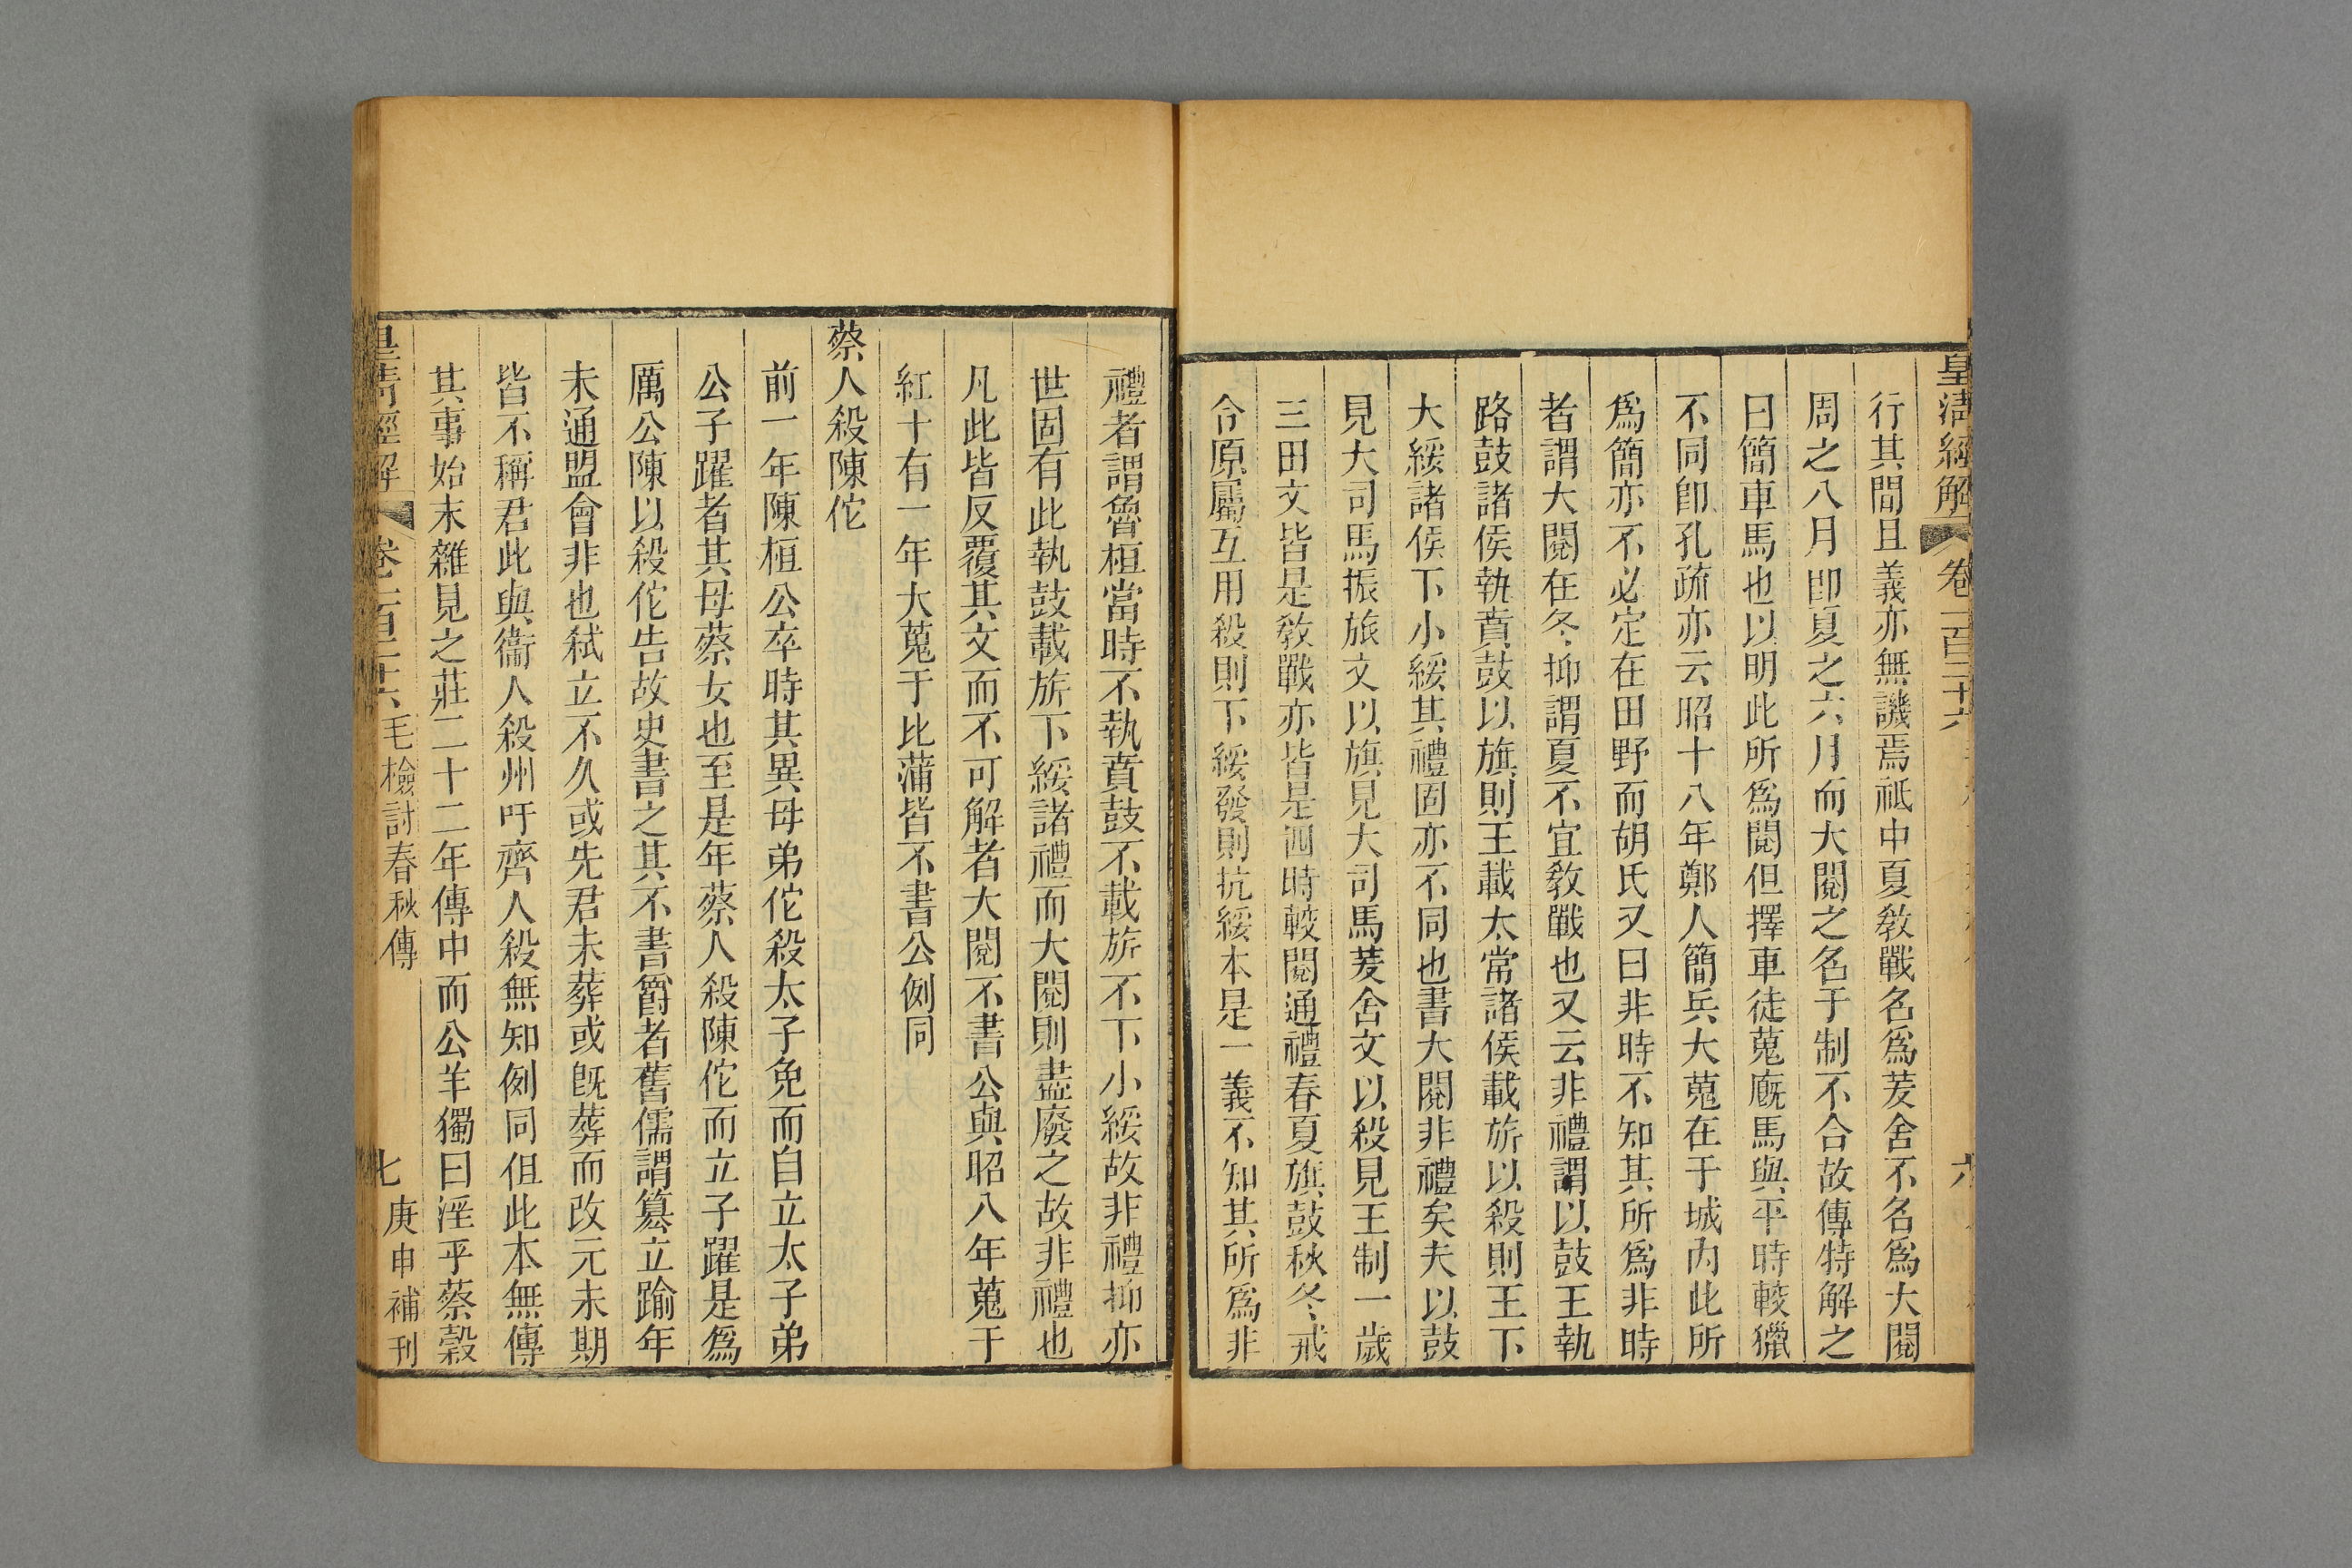 皇清經解 卷一百二十六 六
行其間且義亦無譏焉祗中夏敎戰名爲茇舍不名爲大閱
周之八月卽夏之六月而大閱之名于制不合故傳特解之
曰簡車馬也以明此所爲閱但擇車徒蒐廐馬與平時較獵
不同卽孔疏亦云昭十八年鄭人簡兵大蒐在于城內此所
爲簡亦不必定在田野而胡氏又曰非時不知其所爲非時
者謂大閱在冬抑謂夏不宜敎戰也又云非禮謂以鼓王執
路鼓諸侯執賁鼓以旗則王載太常諸侯載旂以殺則王下
大綏諸侯下小綏其禮固亦不同也書大閱非禮矣夫以鼓
見大司馬振旅文以旗見大司馬茇舍文以殺見王制一歲
三田文皆是敎戰亦皆是四時較閱通禮春夏旗鼓秋冬戒
令原屬互用殺則下綏發則抗綏本是一義不知其所爲非
禮者謂魯桓當時不執賁鼓不載旂不下小綏故非禮抑亦
世固有此執鼓載旂下綏諸禮而大閱則盡廢之故非禮也
凡此皆反覆其文而不可解者大閱不書公與昭八年蒐于
紅十有一年大蒐于比蒲皆不書公例同
蔡人殺陳佗
前一年陳桓公卒時其異母弟佗殺太子免而自立太子弟
公子躍者其母蔡女也至是年蔡人殺陳佗而立子躍是爲
厲公陳以殺佗告故史書之其不書爵者舊儒謂簒立踰年
未通盟會非也弒立不久或先君未葬或旣葬而改元未期
皆不稱君此與衞人殺州吁齊人殺無知例同但此本無傳
其事始末雜見之莊二十二年傳中而公羊獨曰淫乎蔡穀
皇清經解 卷一百二十六 毛檢討春秋傳 七 庚申補刊